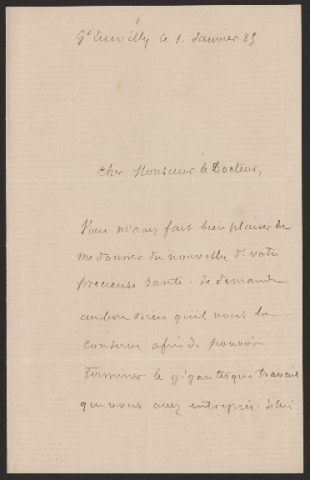 le 1. Janvier 85
Cher Monsieur le Docteur,
Vous m'avez fait bien plaisir de
me donner des nouvelles de votre
précieuse santé. Je demande
au bon Dieu qu'il vous la
conserve afin de pouvoir
terminer le gigantesque travail
que vous avez entrepris.